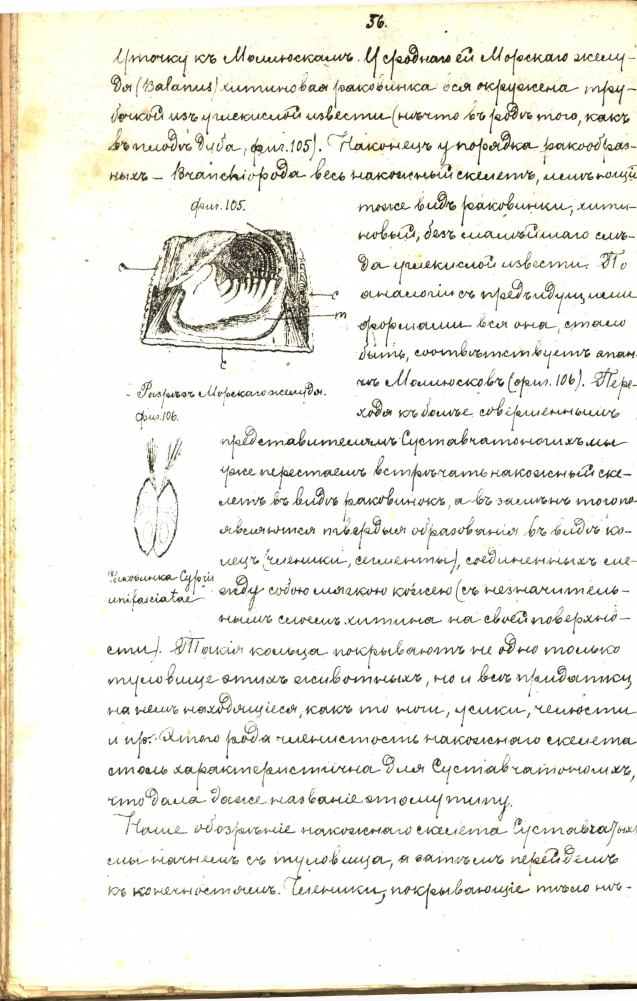 56.
Уточку къ Моллюскамъ. У сроднаго ей Морскаго желу-
дя (Balanus) хитиновая раковинка вся окружена тру-
бочкой изъ углекислой извести (нѣчто въ родѣ того, какъ
въ плодѣ дуба, фиг. 105). Наконецъ у порядка ракообраз-
ныхъ – Branchiopoda весь накожный скелетъ, имѣющій
фиг. 105.
тоже видъ раковинки, хити-
новый, безъ малѣйшаго слѣ-
да углекислой извести. По
аналогіи съ предъидущими
формами вся она, стало
быть, соотвѣтствуетъ эпан-
чѣ Моллюсковъ (фиг. 106). Пере-
ходя къ болѣе совершеннымъ
c
c
m
c
Разрѣзъ Морскаго жолудя.
Фиг. 106.
представителямъ Суставчатоногихъ мы
уже перестаемъ встрѣчать накожный ске-
летъ въ видѣ раковинокъ, а въ замѣнъ того по-
являются твердыя образованія въ видѣ ко-
лецъ (членики, сегменты), соединенныхъ ме-
жду собою мягкою кожею (съ незначитель-
нымъ слоемъ хитина на своей поверхно-
Раковинка Cypris
unifasciatae
сти). Такія кольца покрываютъ не одно только
туловище этихъ животныхъ, но и всѣ придатки
на немъ находящіеся, какъ то ноги, усики, челюсти
и пр. Этого рода членистость накожнаго скелета
столь характеристична для Суставчатоногихъ,
что дала даже названіе этому типу.
Наше обозрѣніе накожнаго скелета Суставчатыхъ
мы начнемъ съ туловища, а затѣмъ перейдемъ
къ конечностямъ. Членики, покрывающіе тѣло нѣ-